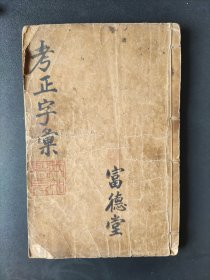 考正字彙
富德堂